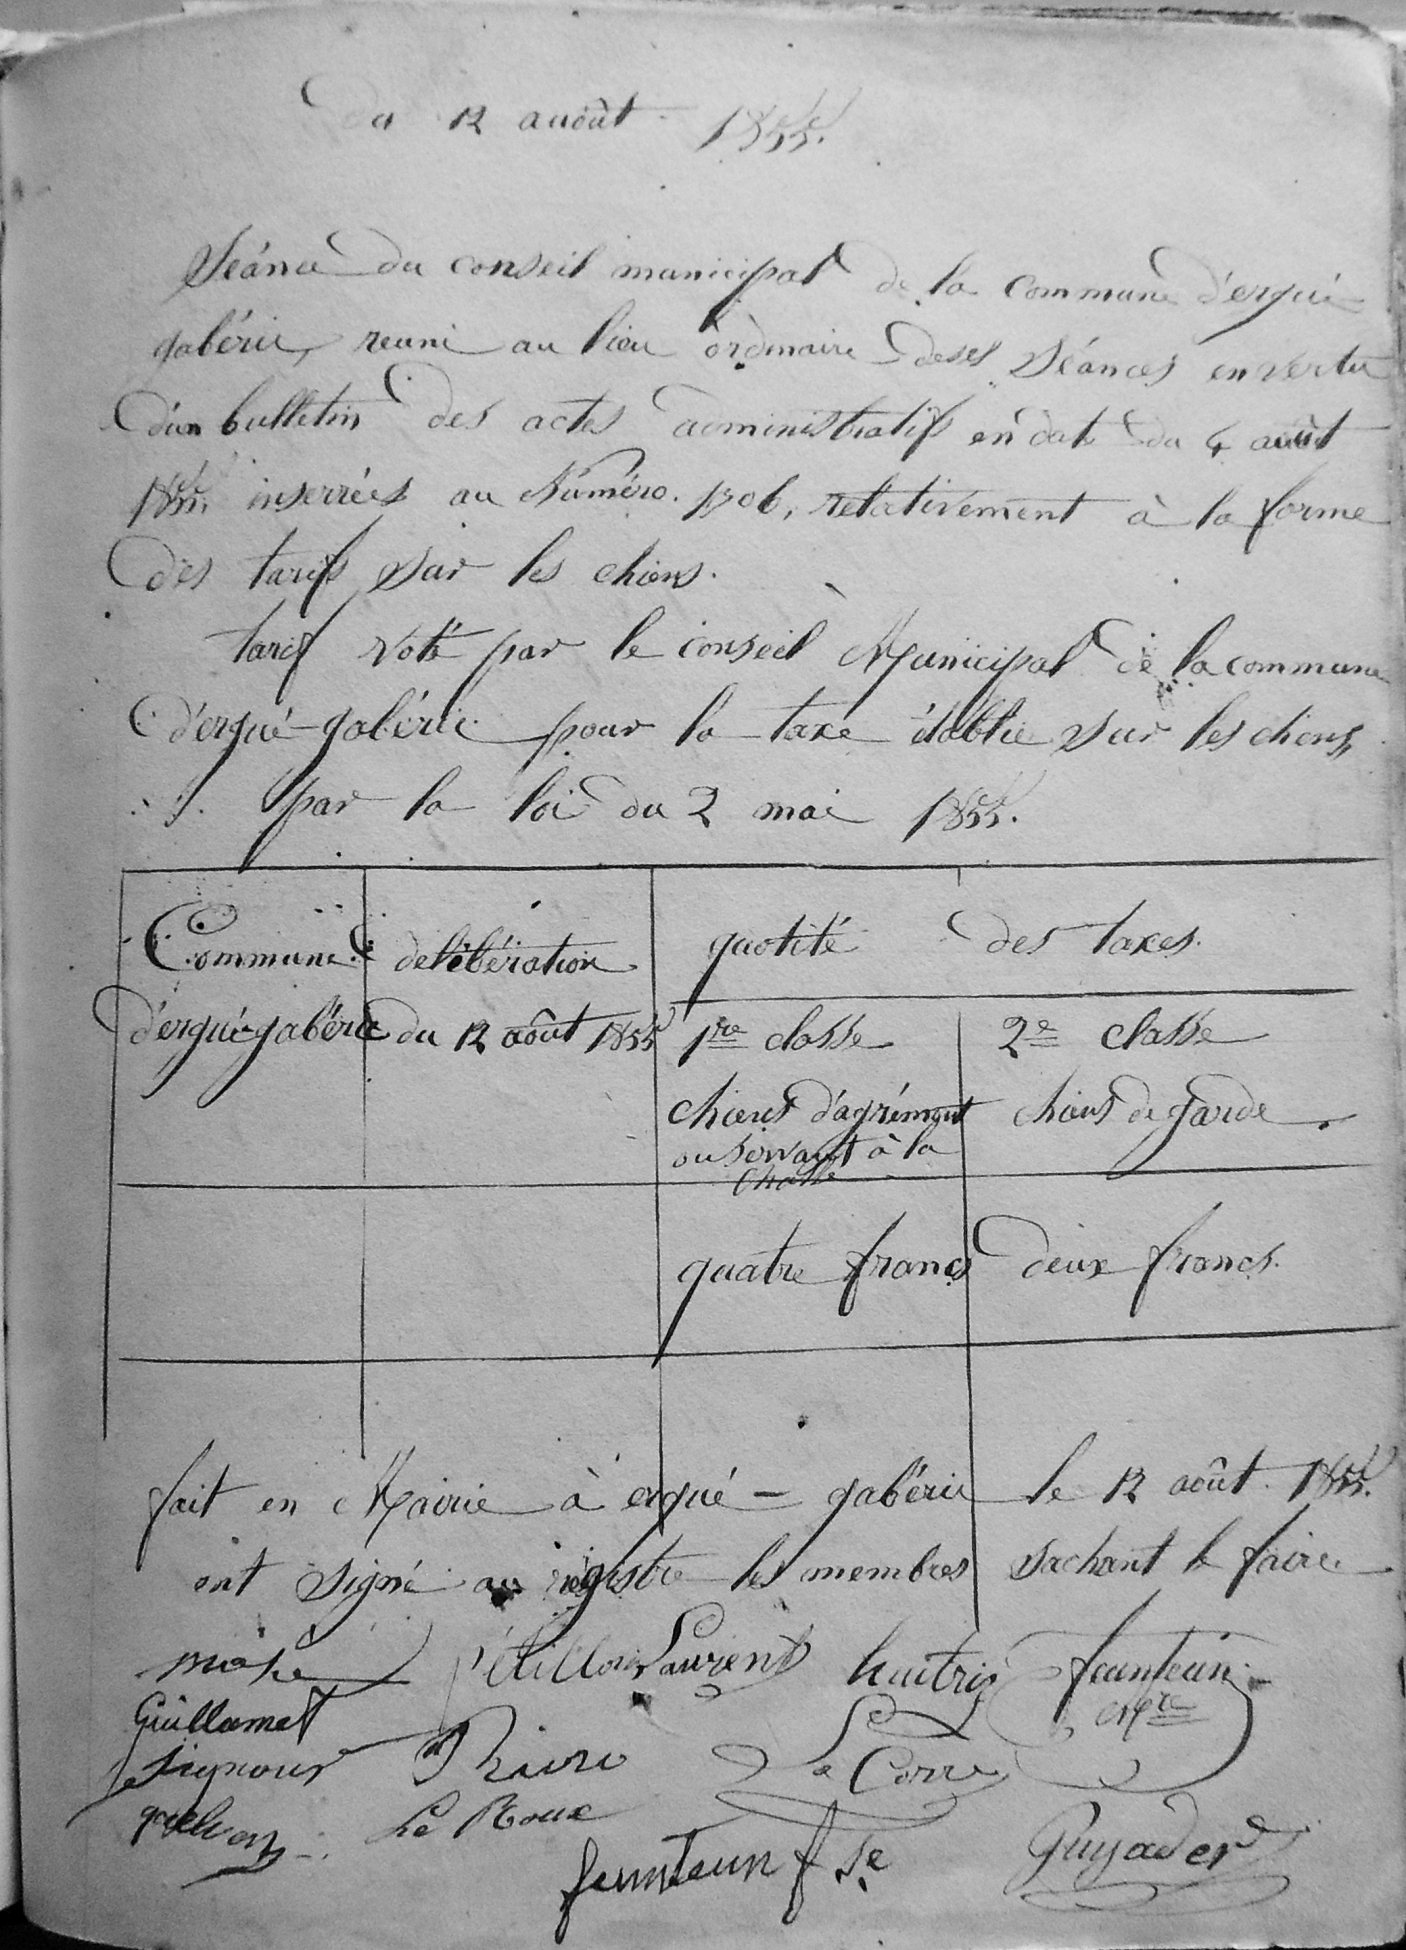 Du 12 auoût 1855.
Séance du conseil municipal de la commune d'ergué
gabéric, reuni au lieu ordinaire deses Séances envertu
d'un bulletin des actes administratifs en date du 4 auoût
1855. inserrées au Numéro. 1306, relativement à la forme
des tarifs sur les chiens.
tarif voté par le conseil Municipal de la commune
d'ergué-gabéric pour la taxe établie sur les chiens,
par la loi du 2 mai 1855.
Commune délébération quotité des taxes.
d'ergué-gabéric du 12 août 1855 1re classe 2e classe
chiens d'agrément chiens de garde.
ou servant à la
chasse
quatre francs deux francs.
fait en Mairie à ergué-gabéric le 12 août. 1855.
ont signé au régistre les membres sachant le faire
mahé pétillon Laurent huitric feunteun
Mre
Guillamet
signour Riou Le Corre
quelven Le Roux
feunteun f se Guyader